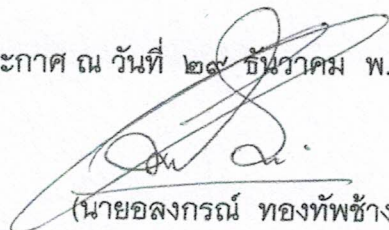 ะกาศ ณ วันที่ ๒๙ ธันวาคม พ.
(นายอลงกรณ์ ทองทัพช้าง